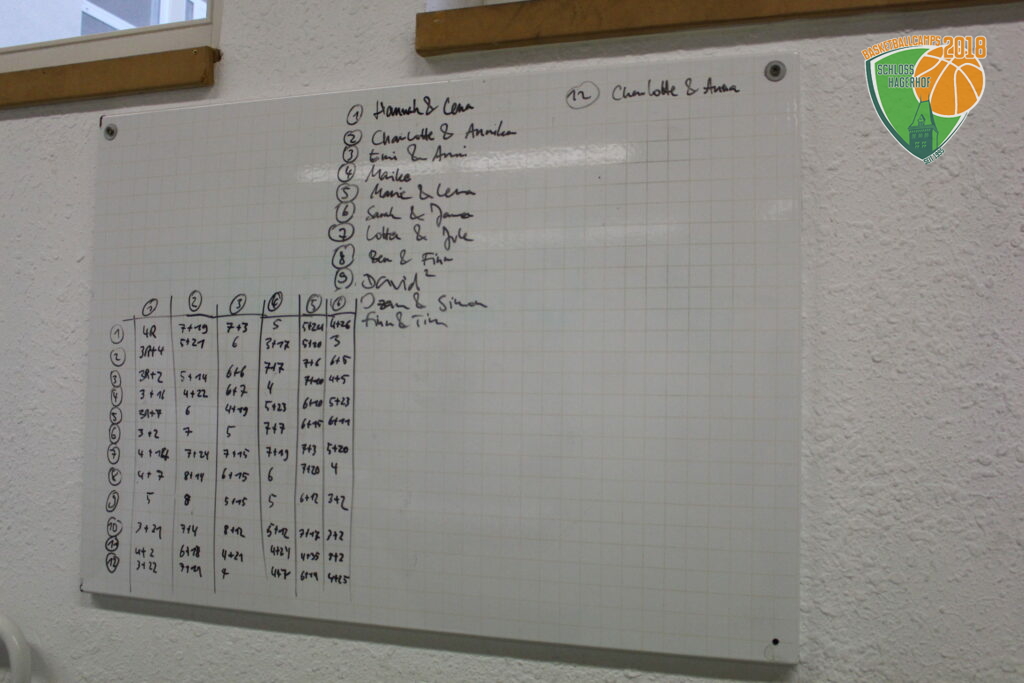 BASKETBALLCAMPS 2018
SCHLOSS
HAGERHOF
① Hannah & Lena
⑫ Charlotte & Anna
② Charlotte & Annika
③ & Anni
④ Maike
⑤ Marie & Lena
⑥ Sarah &
⑦ Lotta & Jule
⑧ Ben & Finn
⑨ David²
& Simon
Finn & Tim
① ② ③ ④ ⑤ ⑥
① 4R 7+19 7+3 5 5+24 4+26
② 3R+4 5+21 6 3+17 5+20 3
③ 3R+2 5+14 6+6 7+7 7+6 6+5
④ 3+16 4+22 6+7 4 4+5
⑤ 3R+7 6 4+19 5+23 6+10 5+23
⑥ 3+2 7 5 7+7 6+15 6+11
⑦ 7+24 7+15 7+19 7+3 5+20
⑧ 4+7 8+14 6+15 6 7+20 4
⑨ 5 8 5+15 5 6+12 3+2
⑩ 3+21 7+4 8+12 5+12 7+17 3+2
⑪ 4+2 6+18 4+21 4+24 4+25
⑫ 3+22 7+11 4+7 6+19 4+25